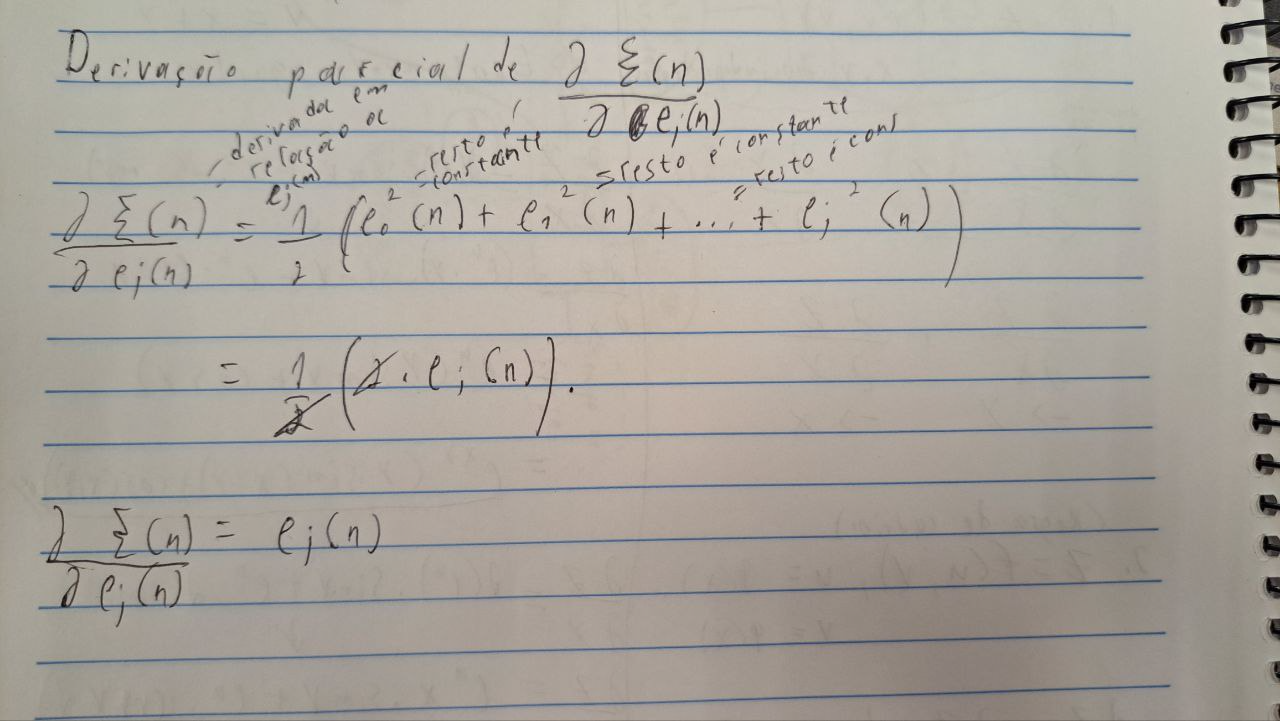 Derivação parcial de ∂ξ(n)/∂e_j(n)
derivada em relação a e_j(n)
resto é constante
= resto é constante
= resto é cons
∂ξ(n)/∂e_j(n) = 1/2 (e₀²(n) + e₁²(n) + ... + e_j²(n))
= 1/2 (2 . e_j(n)).
∂ξ(n)/∂e_j(n) = e_j(n)